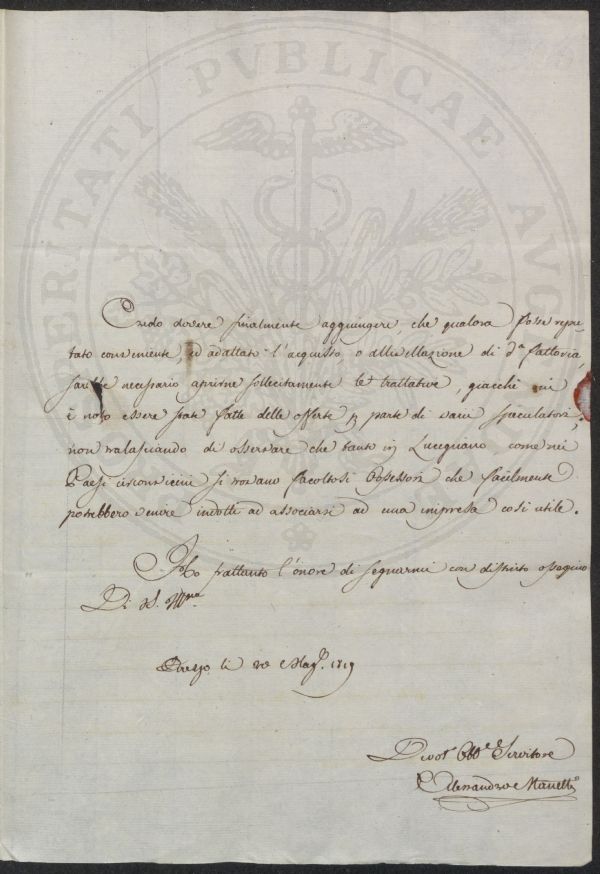 VERITATI PVBLICAE AVG
Credo dovere finalmente aggiungere, che qualora fosse repu-
tato conveniente, ed adattato l'acquisto, o allivellazione di d.a fattoria,
sarebbe necessario aprirne sollecitamente le trattative, giacchè mi
è noto essere state fatte delle offerte p parte di varii speculatori;
non tralasciando di osservare che tanto in Lucignano, come nei
Paesi circonvicini si trovano facoltosi Possessori che facilmente
potrebbero venire indotti ad associarsi ad una impresa così utile.
Ho frattanto l'onore di segnarmi con distinto ossequio
Di V. S. Ill.ma
Arezzo li 20 Mag.o 1819
Devot. Obb. Servitore
Alessandro Manetti